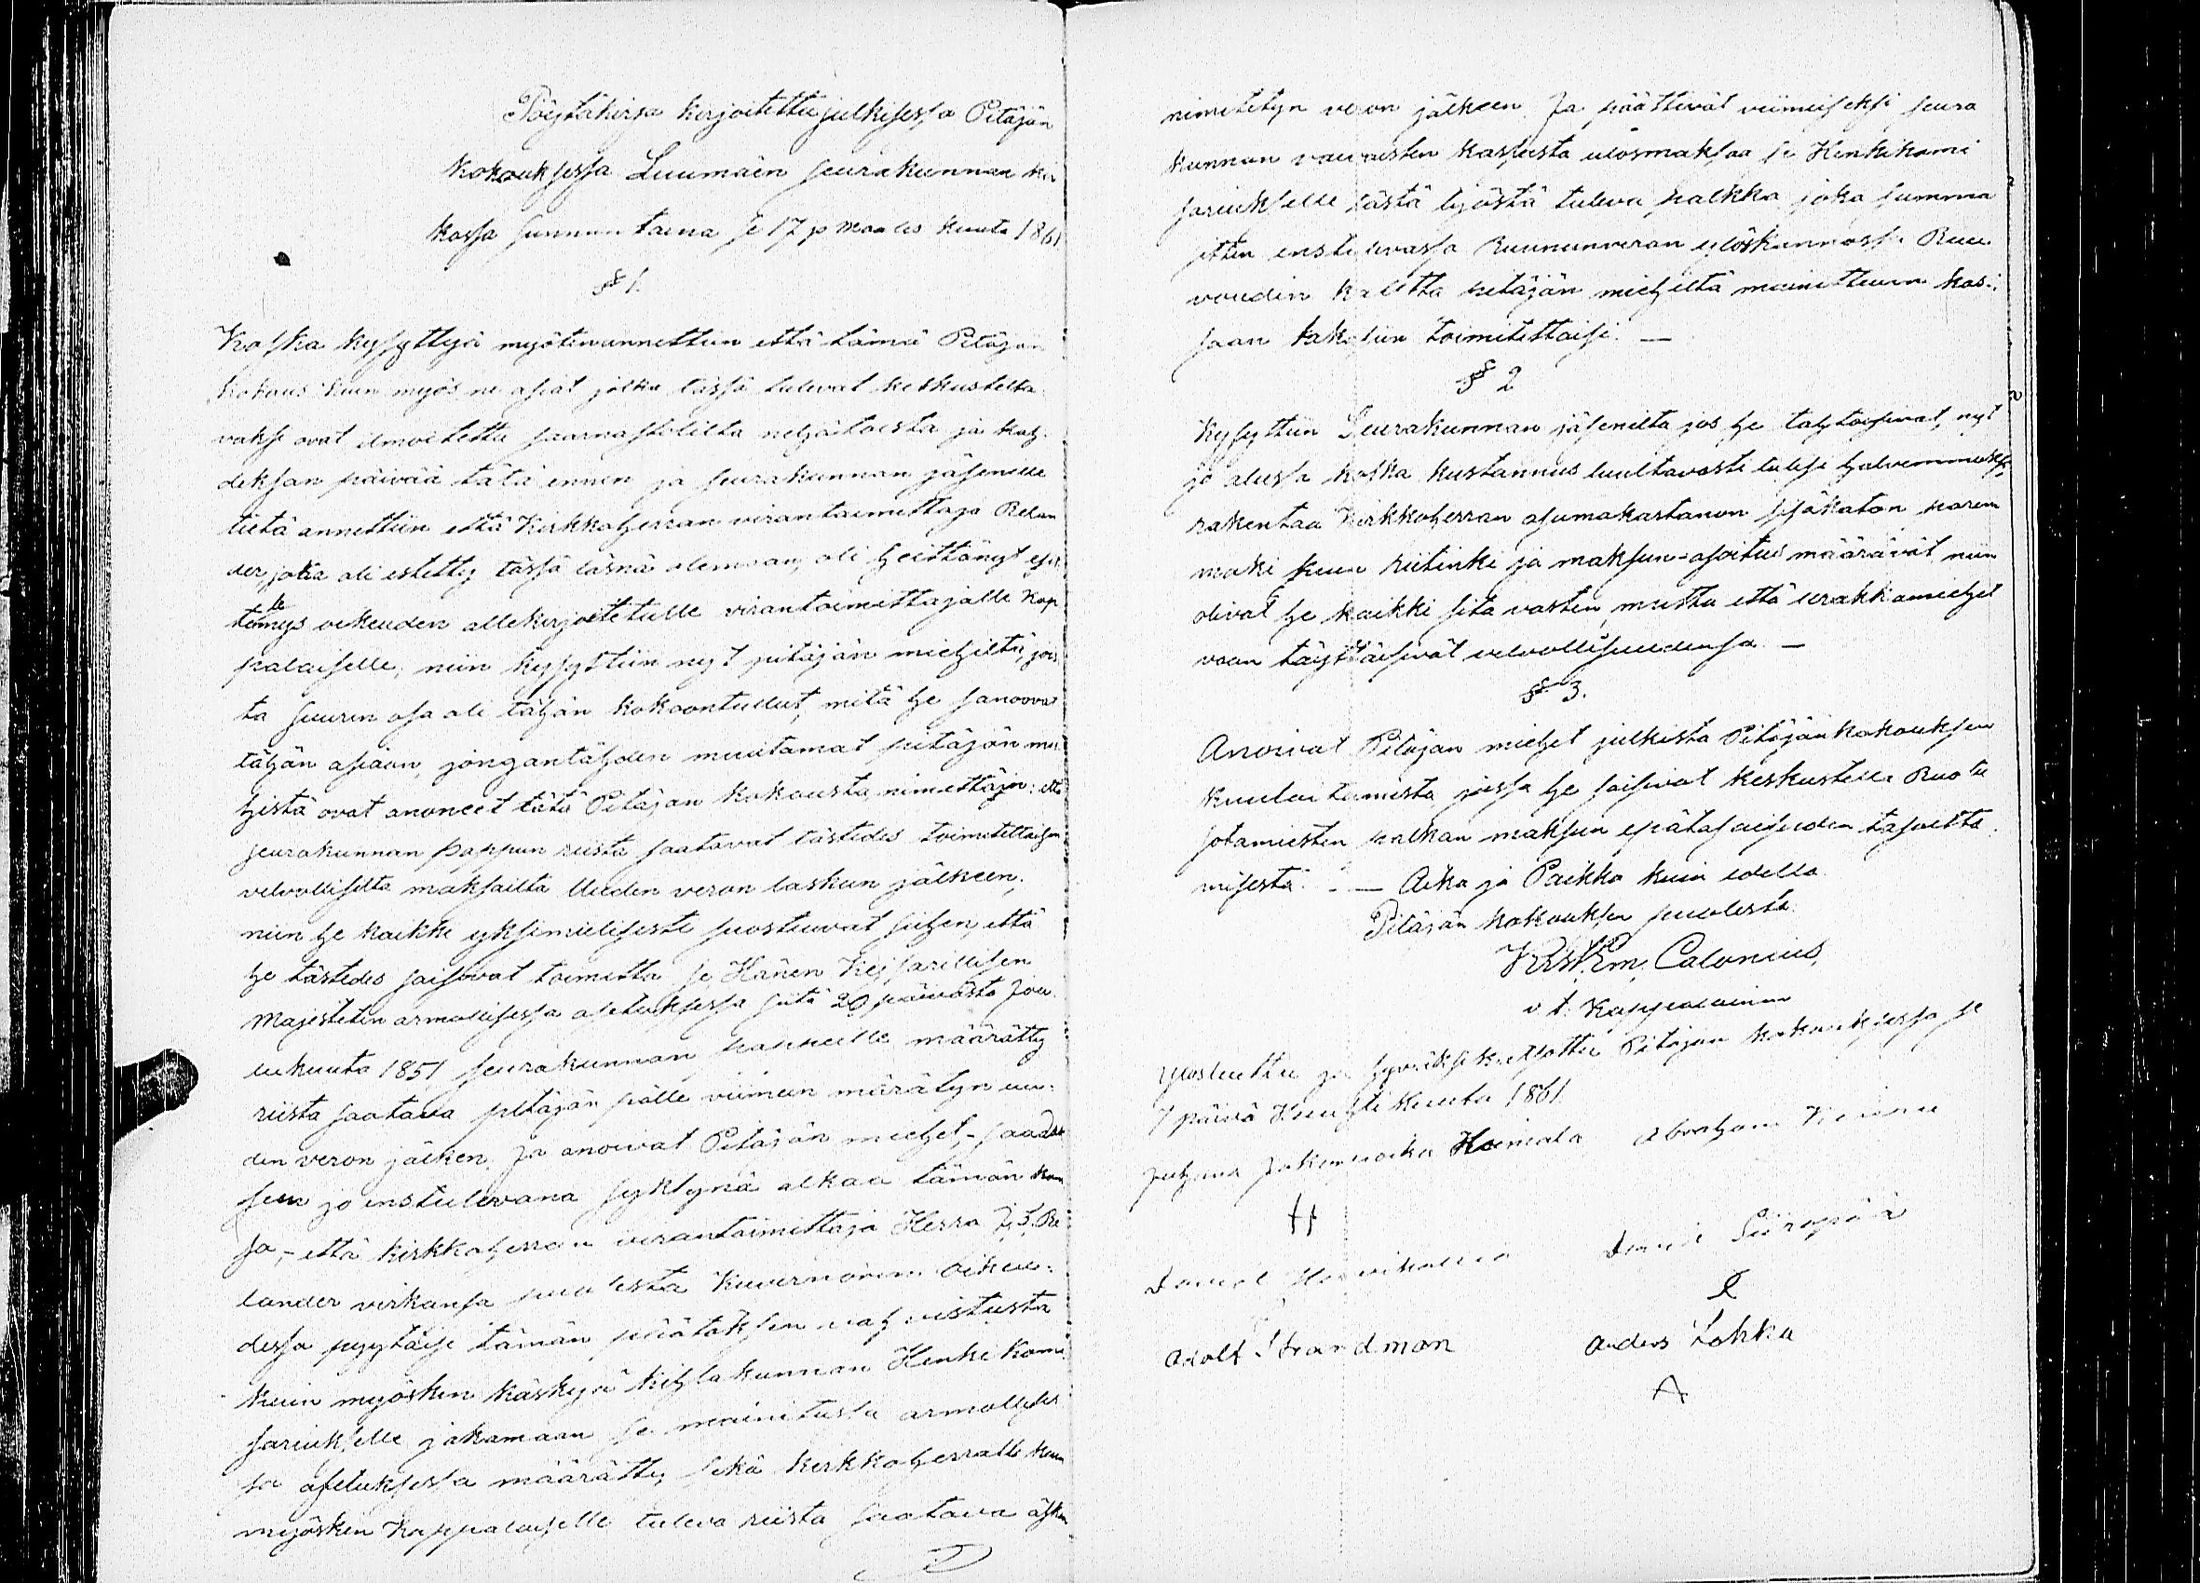 Pöytäkirja kirjoitettu julkisessa Pitäjän
kokouksessa Luumäen seurakunnan kir
kossa sunnuntaina se 17 p Maalis kuuta 1861
§ 1.
Koska kysyttyä myötenannettiin että tämä Pitäjän
kokous kuin myös ne asiat jotka tässä tulevat keskustelta
vaksi ovat ilmoitettu saarnastolilta neljätoista ja kah
deksan päivää tätä ennen ja seurakunnan jäsenille
tietä annettiin että Kirkkoherran virantoimittaja Relan
der, joka oli estetty tässä läsnä olemaan, oli heittänyt esi
telmys oikeuden allekirjoitetulle virantoimittajalle Kap
palaiselle, niin kysyttiin nyt pitäjän miehiltä, jois
ta suurin osa oli tähän kokoontullut, mitä he sanoovat
tähän asiaan, jongantähden muutamat pitäjän mie
histä ovat anoneet tätä Pitäjän kokousta, nimittäin: että
seurakunnan pappein riista saatavat tästedes toimitettaisin
velvollisilta maksailta Uuden veron laskun jälkeen;
niin he kaikki yksimielisesti suostuivat siihen, että
he tästedes saisivat toimitta se Hänen Keisarillisen
Majestetin armollisessa asetuksessa siitä 20 päivästä Jou
lukuuta 1851 seurakunnan pappeille määrätty
riista saatava pitäjän pälle viimein määrätyn uu:
den veron jälken. Ja anoivat Pitäjän miehet, saada
sen jo enstulevana syksynä alkaa tämän kan
sa, - että kirkkoherran virantoimittaja Herra J. S. Re:
lander virkansa puolesta Kuvernörin oikeu:
dessa pyytäisi tämän päätöksen vahvistusta
kuin myöskin käskyä kihlakunnan Henki Komi
sariukselle jakamaan se mainitussa armollises
sa asetuksessa määrätty sekä kirkkoherralle kuin
myöskin Kappalaiselle tuleva riista saatava äsken
nimitetyn veron jälkeen. Ja päättivät viimeiseksi seura
kunnan vaivaisten kassasta ulosmaksaa se Henkikomi
sariukselle tästä työstä tuleva palkka joka summa
sitten enstulevassa Ruununveron ylöskannossa Ruu
voudin kautta pitäjän miehiltä mainittuun kas:
saan takasin toimitettaisi. —
§ 2
Kysyttiin Seurakunnan jäseniltä jos he tahtoisivat, nyt
jo alussa koska kustannus luultavasti tulisi halvemmaksi,
rakentaa Kirkkoherran asumakartanon sisäkaton parem
maksi kuin riitinki ja maksun-asoitus määräävät, niin
olivat he kaikki sitä vasten, mutta että urakkamiehet
vaan täyttäisivät velvollisuudensa. —
§ 3.
Anoivat Pitäjän miehet julkista Pitäjänkokouksen
kuuluttamista, jossa he saisivat keskustella Ruotu
sotamiesten palkan maksun epätasaisuden tasoitta
misesta. — Aika ja Paikka kuin edellä
Pitäjän kokouksen puolesta.
Krist. Em. Calonius,
v. t. Kappalainen
Ylösluettu ja hyväksikatsottu Pitäjän kokouksessa se
7 päivä Huhtikuuta 1861.
Juhana Jakominoika Heimala Abraham
H
Daniel David Siiropää
Adolf Strandman Anders Lohko
A